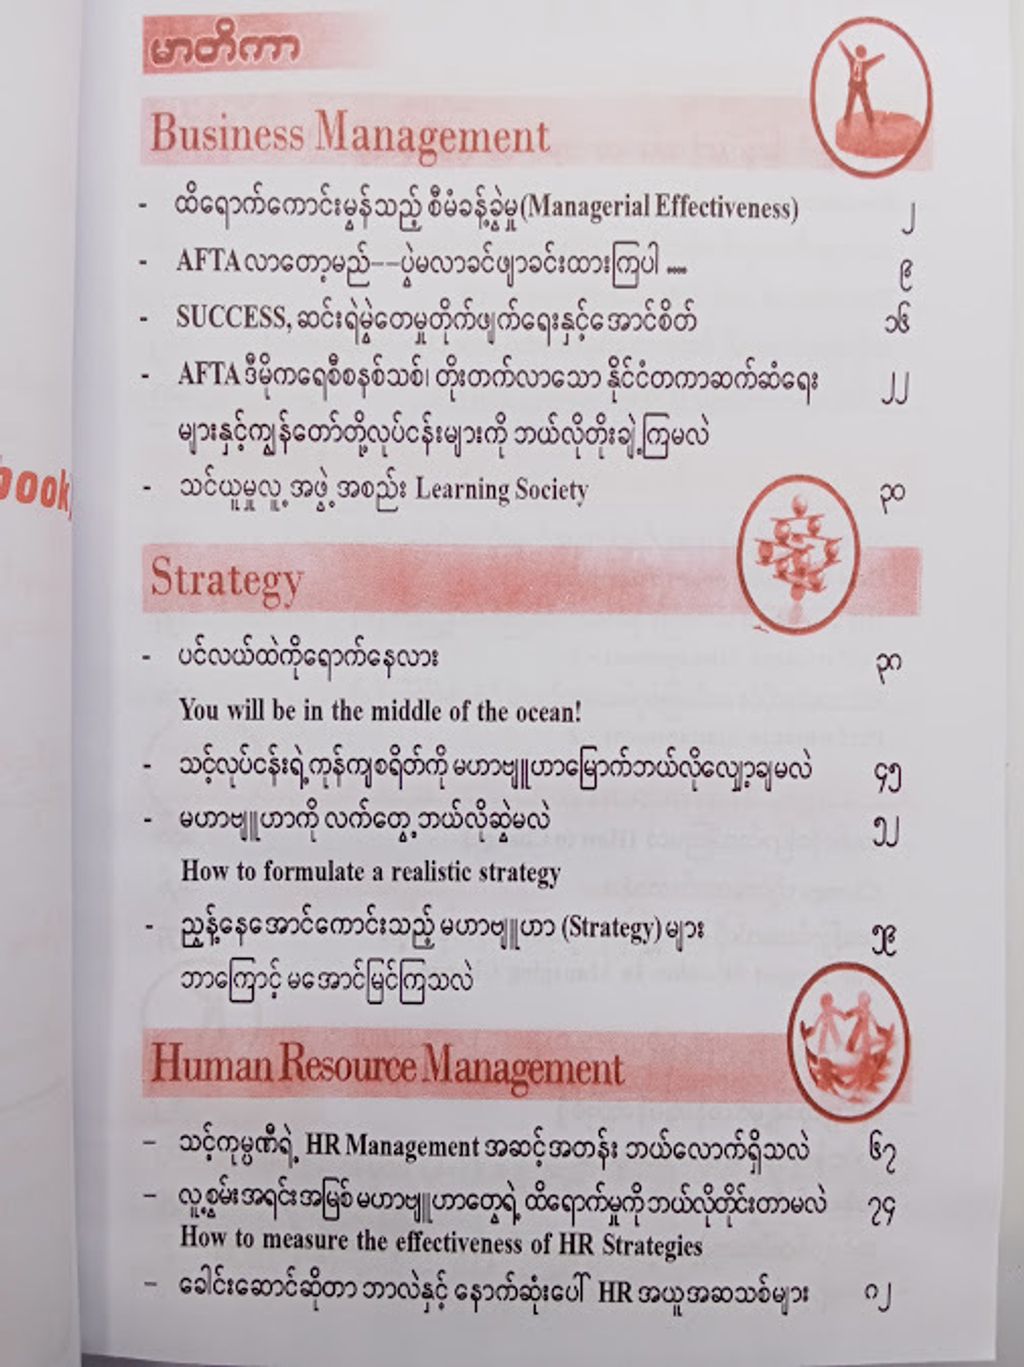 မာတိကာ
Business Management
- ထိရောက်ကောင်းမွန်သည့် စီမံခန့်ခွဲမှု(Managerial Effectiveness) ၂
- AFTA လာတော့မည်---ပွဲမလာခင်ဖျာခင်းထားကြပါ .... ၉
- SUCCESS, ဆင်းရဲမွဲတေမှုတိုက်ဖျက်ရေးနှင့်အောင်စိတ် ၁၆
- AFTA ဒီမိုကရေစီစနစ်သစ်၊ တိုးတက်လာသော နိုင်ငံတကာဆက်ဆံရေး ၂၂
များနှင့်ကျွန်တော်တို့လုပ်ငန်းများကို ဘယ်လိုတိုးချဲ့ကြမလဲ
- သင်ယူမှုလူ့အဖွဲ့အစည်း Learning Society ၃၀
book
Strategy
- ပင်လယ်ထဲကိုရောက်နေလား ၃၈
You will be in the middle of the ocean!
- သင့်လုပ်ငန်းရဲ့ကုန်ကျစရိတ်ကို မဟာဗျူဟာမြောက်ဘယ်လိုလျှော့ချမလဲ ၄၅
- မဟာဗျူဟာကို လက်တွေ့ဘယ်လိုဆွဲမလဲ ၅၂
How to formulate a realistic strategy
- ညွှန့်နေအောင်ကောင်းသည့် မဟာဗျူဟာ (Strategy) များ ၅၉
ဘာကြောင့် မအောင်မြင်ကြသလဲ
Human Resource Management
- သင့်ကုမ္ပဏီရဲ့ HR Management အဆင့်အတန်း ဘယ်လောက်ရှိသလဲ ၆၇
- လူ့စွမ်းအရင်းအမြစ် မဟာဗျူဟာတွေရဲ့ ထိရောက်မှုကို ဘယ်လိုတိုင်းတာမလဲ ၇၄
How to measure the effectiveness of HR Strategies
- ခေါင်းဆောင်ဆိုတာ ဘာလဲနှင့် နောက်ဆုံးပေါ် HR အယူအဆသစ်များ ၈၂